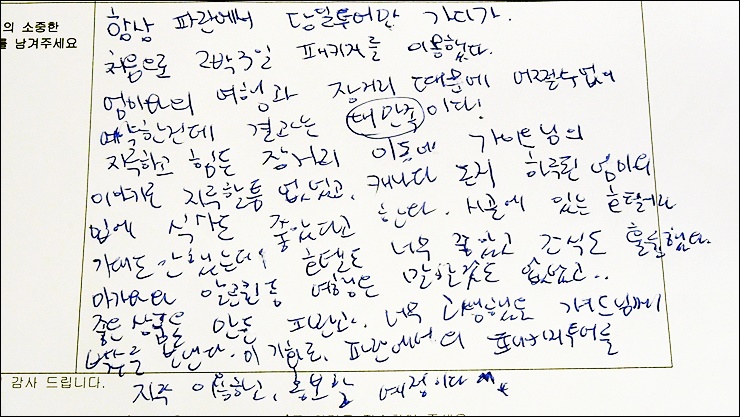 의 소중한
를 남겨주세요
항상 파란에서 당일투어만 가다가.
처음으로 2박3일 패키지를 이용했다.
엄마와의 여행과 장거리 때문에 어쩔수없이
예약한건데 결과는 대만족이다!
지루하고 힘든 장거리 이동에 가이드님의
이야기로 지루할틈 없었고, 캐나다 온지 하루된 엄마의
입에 식사도 좋았다고 한다. 시골에 있는 호텔이라
기대도 안했는데, 호텔도 너무 좋았고 간식도 훌륭했다.
마가와 알곤퀸등 여행은 말할것도 없었고..
좋은 상품을 만든 파란과, 너무 고생했을 가이드님께
박수를 보낸다. 이 기회로, 파란에서의 패키지투어를
감사 드립니다.
자주 이용하고, 홍보할 예정이다